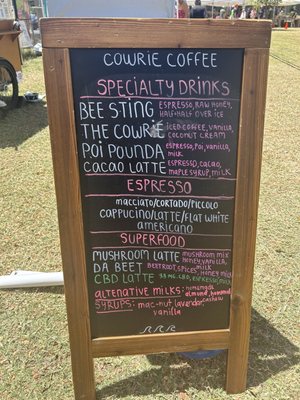 COWRIE COFFEE
SPECIALTY DRINKS
BEE STING ESPRESSO, RAW HONEY,
HALF+HALF OVER ICE
THE COWRIE ICED COFFEE, VANILLA,
COCONUT CREAM
POI POUNDA espresso, poi, vanilla,
milk
CACAO LATTE espresso, cacao,
maple syrup, milk
ESPRESSO
macciato/cortado/piccolo
cappucino/latte/flat white
americano
SUPERFOOD
MUSHROOM LATTE mushroom mix
honey, vanilla,
milk
DA BEET beetroot, spices, honey mix
milk
CBD LATTE 33 MG CBD, espresso, milk
ALTENATIVE MILKS: homemade
almond, macnut
cashew
SYRUPS: mac-nut, lavender,
vanilla